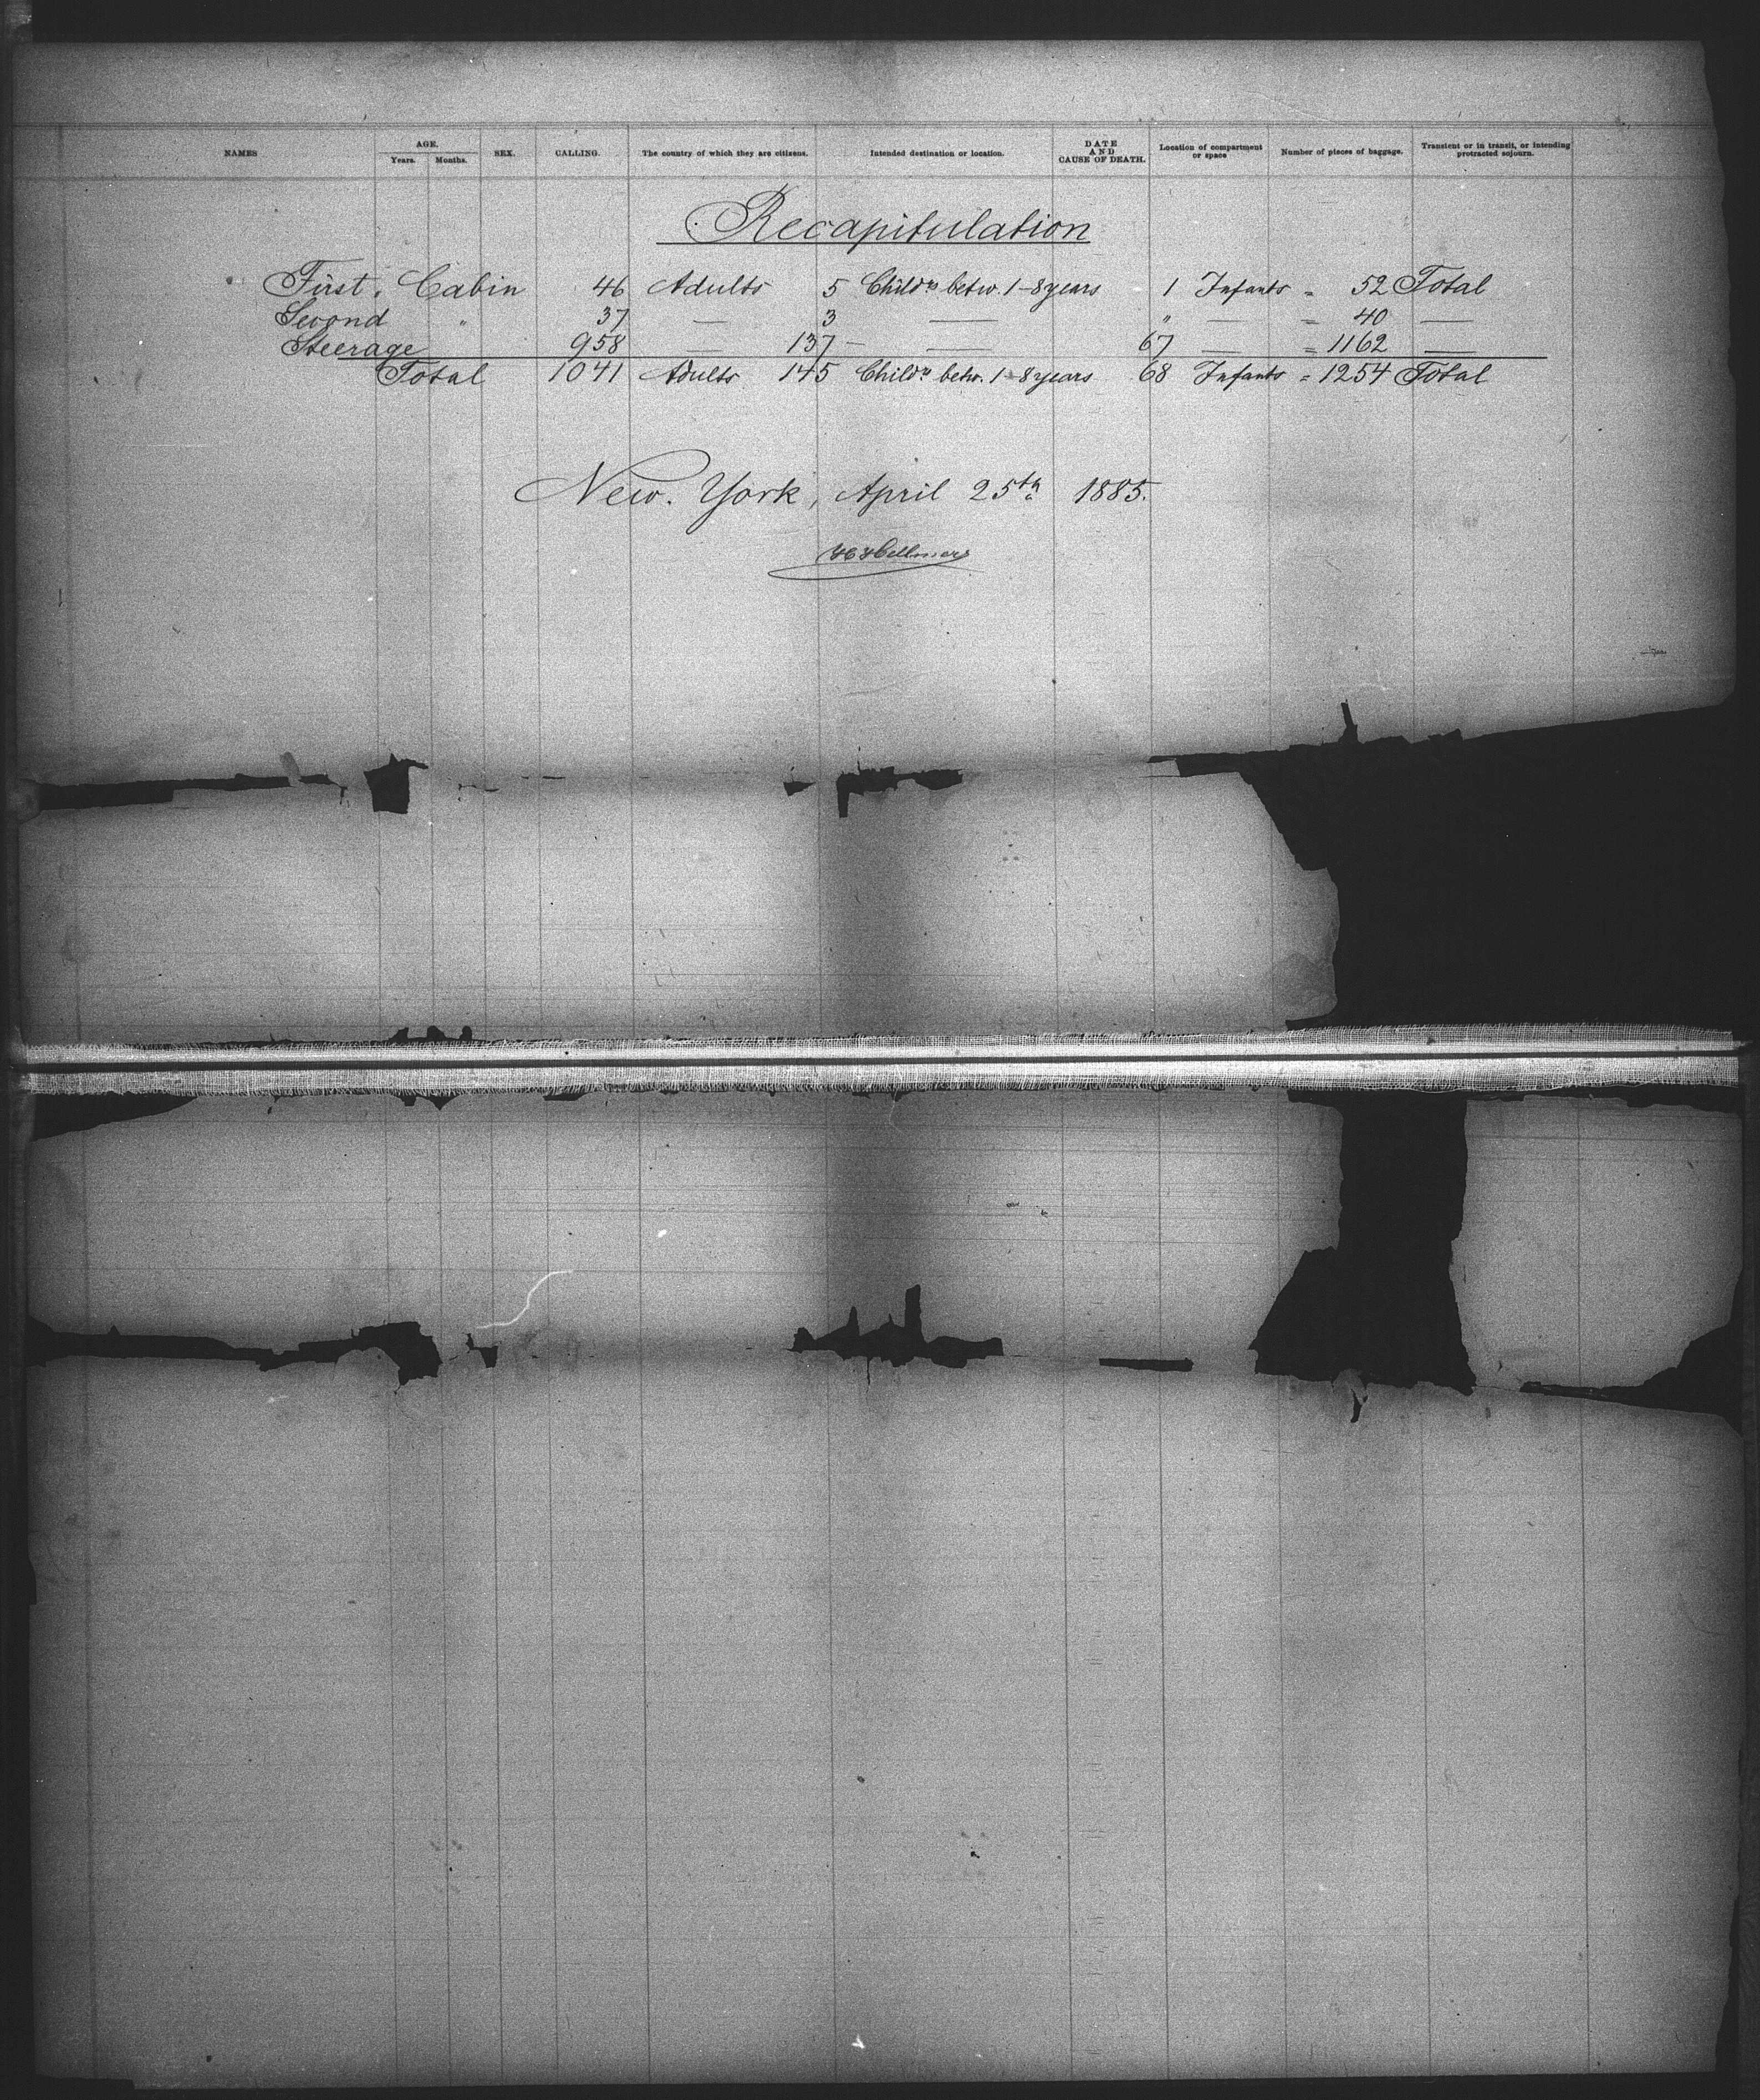 NAMES AGE. SEX. CALLING. The country of which they are citizens. Intended destination or location. DATE AND CAUSE OF DEATH. Location of compartment or space Number of pieces of baggage. Transient or in transit, or intending protracted sojourn.
Years. Months.
Recapitulation
First. Cabin 46 Adults 5 Childrs betw. 1-8 years 1 Infants = 52 Total
Second " 37 — 3 — " — = 40 —
Steerage 958 — 137 — — 67 — = 1162 —
Total 1041 Adults 145 Childrs betw. 1-8 years 68 Infants = 1254 Total
New. York, April 25th 1885.